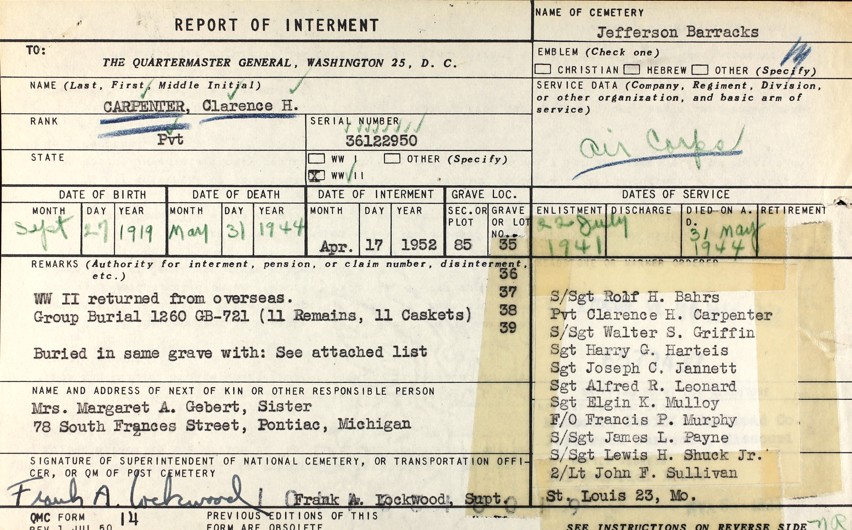 REPORT OF INTERMENT
NAME OF CEMETERY
Jefferson Barracks
TO:
THE QUARTERMASTER GENERAL, WASHINGTON 25, D. C.
EMBLEM (Check one)
CHRISTIAN HEBREW OTHER (Specify)
NAME (Last, First, Middle Initial)
CARPENTER, Clarence H.
SERVICE DATA (Company, Regiment, Division, or other organization, and basic arm of service)
Air Corps
RANK
Pvt
SERIAL NUMBER
36122950
STATE
WW I OTHER (Specify)
X WW II
DATE OF BIRTH DATE OF DEATH DATE OF INTERMENT GRAVE LOC. DATES OF SERVICE
MONTH DAY YEAR MONTH DAY YEAR MONTH DAY YEAR SEC. OR PLOT GRAVE OR LOT NO. ENLISTMENT DISCHARGE DIED ON A. D. RETIREMENT
Sept 27 1919 May 31 1944 Apr. 17 1952 85 35 22 July 1941 31 May 1944
36
37
38
39
REMARKS (Authority for interment, pension, or claim number, disinterment, etc.)
WW II returned from overseas.
Group Burial 1260 GB-721 (11 Remains, 11 Caskets)
Buried in same grave with: See attached list
S/Sgt Rolf H. Bahrs
Pvt Clarence H. Carpenter
S/Sgt Walter S. Griffin
Sgt Harry G. Harteis
Sgt Joseph C. Jannett
Sgt Alfred R. Leonard
Sgt Elgin K. Mulloy
F/O Francis P. Murphy
S/Sgt James L. Payne
S/Sgt Lewis H. Shuck Jr.
2/Lt John F. Sullivan
St. Louis 23, Mo.
NAME AND ADDRESS OF NEXT OF KIN OR OTHER RESPONSIBLE PERSON
Mrs. Margaret A. Gebert, Sister
78 South Frances Street, Pontiac, Michigan
SIGNATURE OF SUPERINTENDENT OF NATIONAL CEMETERY, OR TRANSPORTATION OFFICER, OR QM OF POST CEMETERY
Frank A. Lockwood (Frank A. Lockwood, Supt.
QMC FORM 14
REV 1 JUL 50
PREVIOUS EDITIONS OF THIS
FORM ARE OBSOLETE
SEE INSTRUCTIONS ON REVERSE SIDE